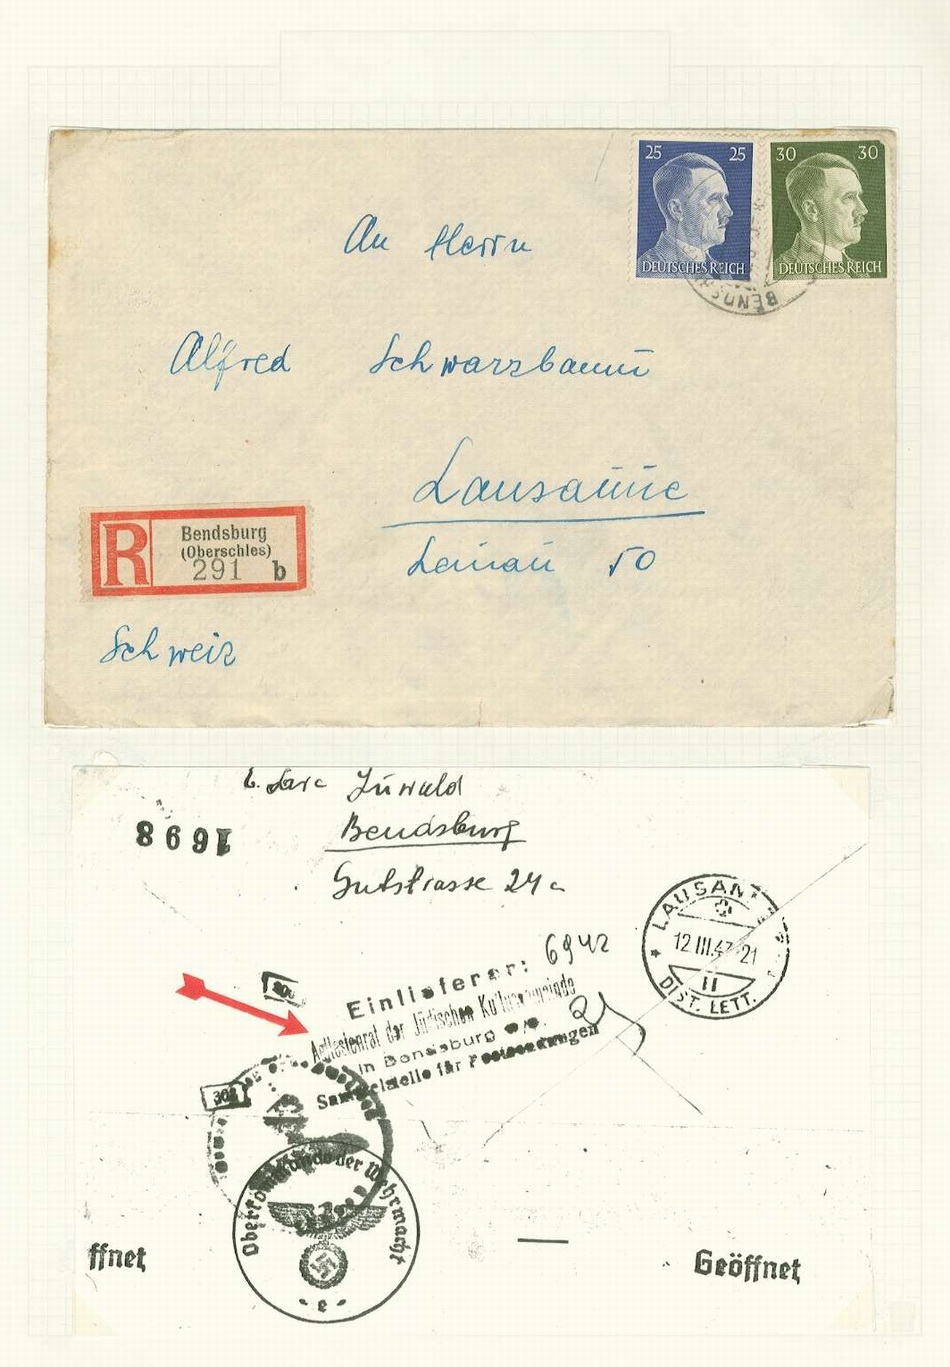 25 25
DEUTSCHES REICH
30 30
DEUTSCHES REICH
BENDS
An Herrn
Alfred Schwarzbaum
Lausanne
Leman 50
R
Bendsburg
(Oberschles)
291 b
Schweiz
Sara Zuwald
Bendsburg
Gutstrasse 24a
1698
LAUSANN
12.III.43-21
II
DIST. LETT.
6942
Einlieferer:
Aeltestenrat der Jüdischen Kultusgemeinde
in Bendsburg O/S.
Sammelstelle für Postsendungen
302
Oberkommando der Wehrmacht
- e -
ffnet
Geöffnet